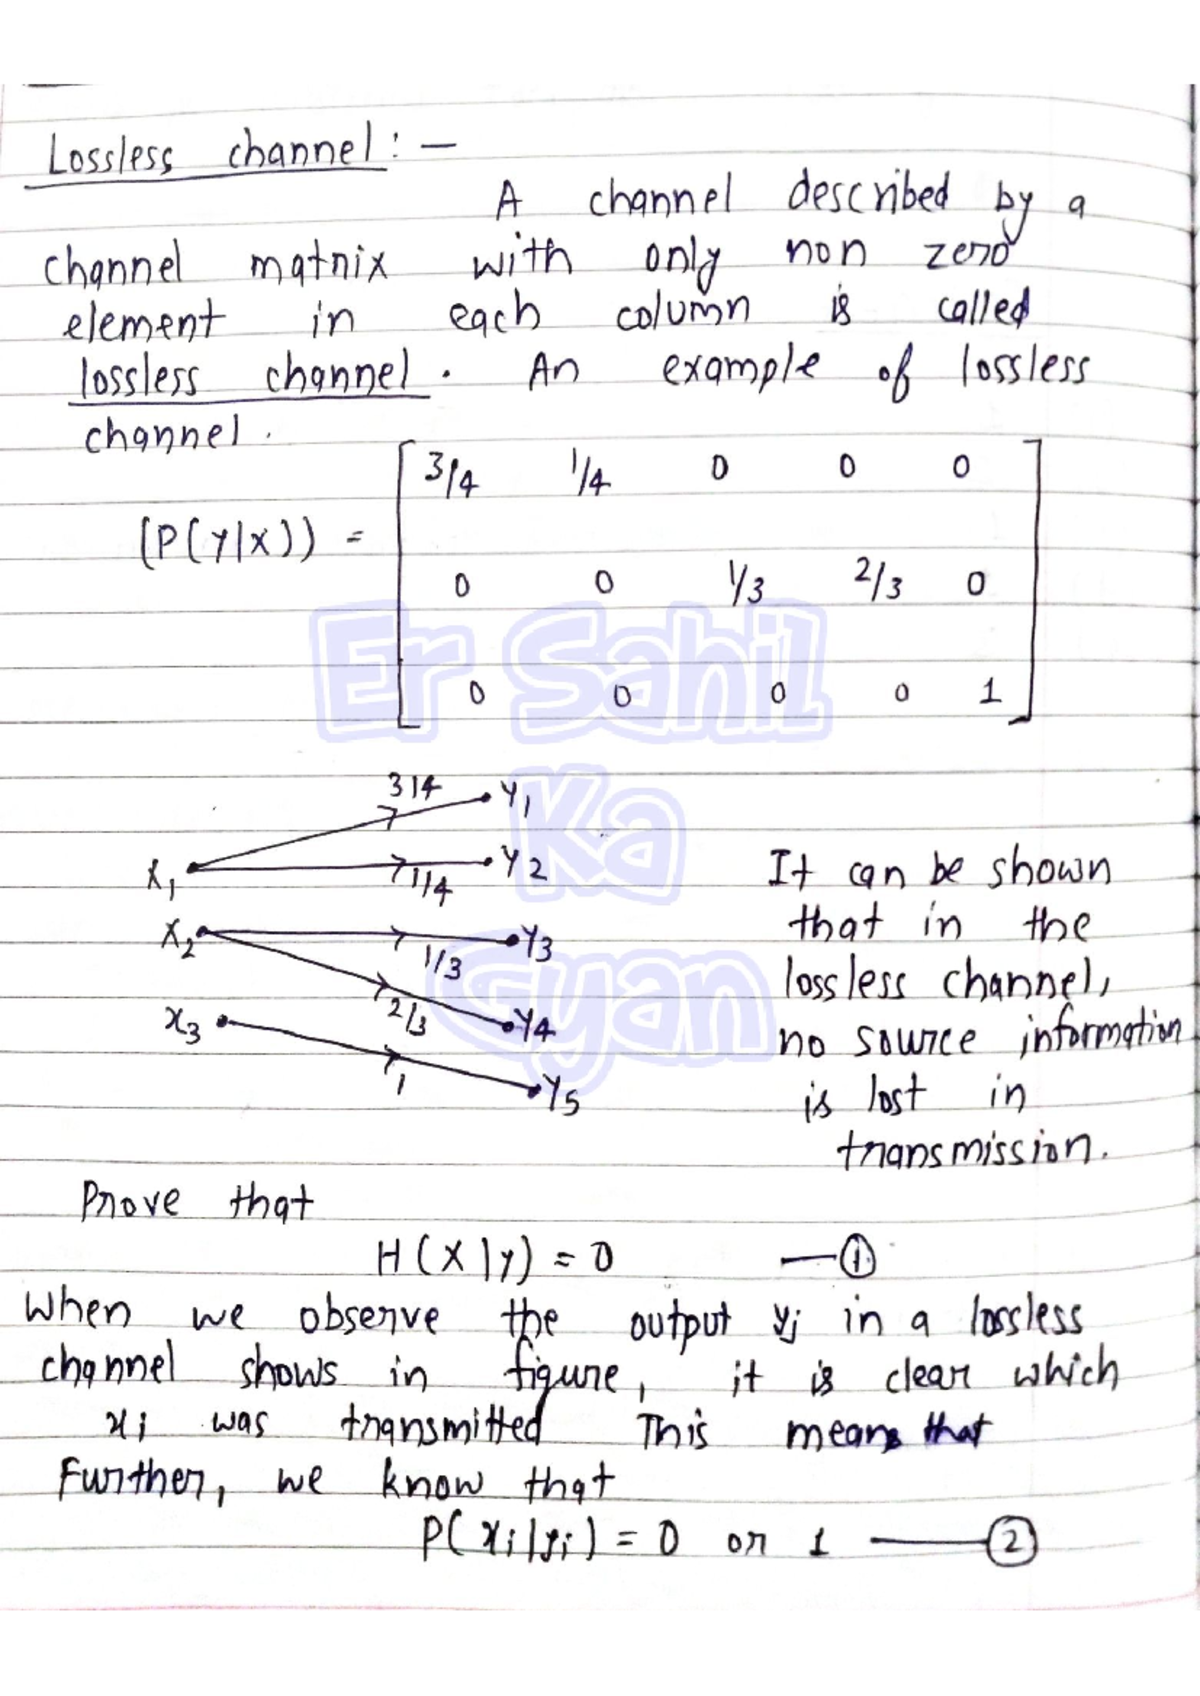 Lossless channel : —
A channel described by a
channel matrix with only non zero
element in each column is called
lossless channel. An example of lossless
channel.
[P(Y|X)] =
3/4 1/4 0 0 0
0 0 1/3 2/3 0
0 0 0 0 1
Er Sahil
Ka
Gyan
3/4 Y1
X1 1/4 Y2
X2 1/3 Y3
2/3 Y4
x3 1 Y5
It can be shown
that in the
lossless channel,
no source information
is lost in
transmission.
Prove that
H(X|Y) = 0 — ①
When we observe the output yj in a lossless
channel shows in figure, it is clear which
xi was transmitted This means that
Further, we know that
P(xi|yi) = 0 or 1 — ②